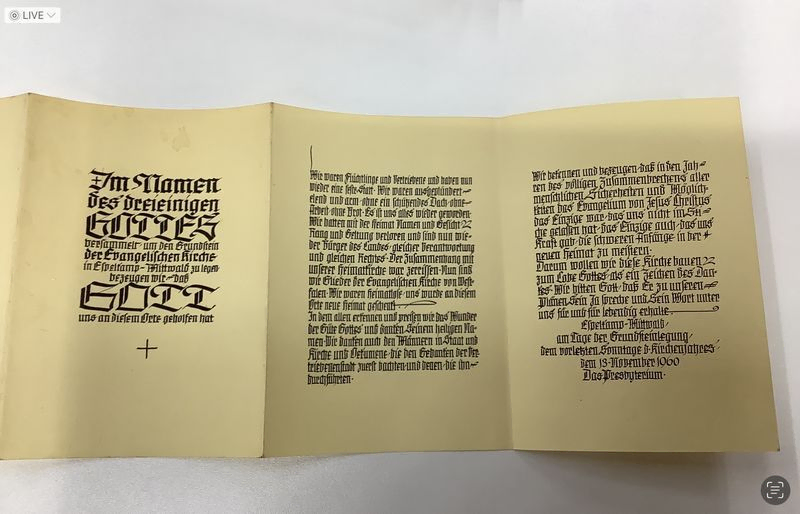 LIVE
Im Namen
des dreieinigen
GOTTES
versammelt um den Grundstein
der Evangelischen Kirche
in Espelkamp-Mittwald zu legen
bezeugen wir daß
GOTT
uns an diesem Orte geholfen hat
Wir waren Flüchtlinge und Vertriebene und haben nun
wieder eine feste Statt. Wir waren ausgeplündert
elend und arm ohne ein schützendes Dach ohne
Arbeit ohne Brot. Es ist uns alles wieder geworden.
Wir hatten mit der Heimat Namen und Gesicht
Rang und Geltung verloren und sind nun wie-
der Bürger des Landes gleicher Verantwortung
und gleichen Rechtes. Der Zusammenhang mit
unserer Heimatkirche war zerrissen. Nun sind
wir Glieder der Evangelischen Kirche von West-
falen. Wir waren heimatlose uns wurde an diesem
Orte neue Heimat geschenkt
In dem allen erkennen und preisen wir das Wunder
der Güte Gottes und danken Seinem heiligen Na-
men. Wir danken auch den Männern in Staat und
Kirche und Oekumene die den Gedanken der Ver-
triebenenstadt zuerst dachten und denen die ihn
durchführten.
Wir bekennen und bezeugen daß in den Jah-
ren des völligen Zusammenbrechens aller
menschlichen Sicherheiten und Möglich-
keiten das Evangelium von Jesus Christus
das Einzige war das uns nicht im Sti-
che gelassen hat das Einzige auch das uns
Kraft gab die schweren Anfänge in der
neuen Heimat zu meistern.
Darum wollen wir diese Kirche bauen
zum Lobe Gottes als ein Zeichen des Dan-
kes. Wir bitten Gott daß Er zu unseren
Plänen Sein Ja spreche und Sein Wort unter
uns für und für lebendig erhalte.
Espelkamp-Mittwald
am Tage der Grundsteinlegung
dem vorletzten Sonntage d. Kirchenjahres
dem 13. November 1960
Das Presbyterium